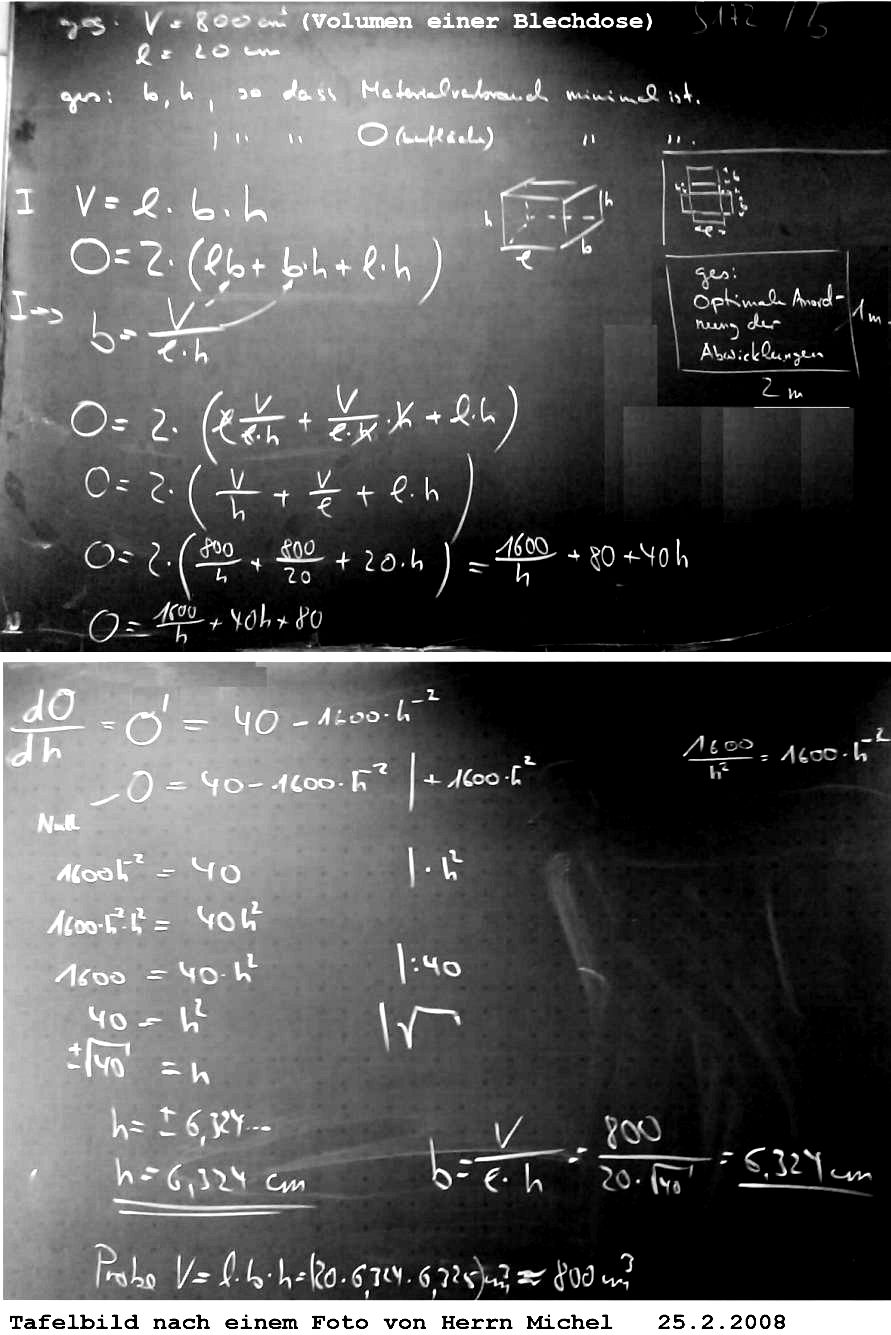 geg. V = 800 cm³ (Volumen einer Blechdose) S.172 / 6
l = 20 cm
ges: b, h, so dass Materialverbrauch minimal ist.
| " " O(berfläche) " ".
I V = l · b · h
h h l b
O = 2 · (lb + b·h + l·h)
I → b = V / l·h
ges:
Optimale Anord-
nung der
Abwicklungen
1 m
2 m
O = 2 · (l V / l·h + V / l·h · h + l·h)
O = 2 · (V / h + V / l + l·h)
O = 2 · (800 / h + 800 / 20 + 20·h) = 1600 / h + 80 + 40h
O = 1600 / h + 40h + 80
dO / dh = O' = 40 - 1600·h⁻²
1600 / h² = 1600·h⁻²
0 = 40 - 1600·h⁻² | + 1600·h⁻²
Null
1600h⁻² = 40 | · h²
1600·h⁻²·h² = 40h²
1600 = 40·h² | :40
40 = h² | √
±√40 = h
h = ± 6,324...
h = 6,324 cm
b = V / l·h = 800 / 20·√40 = 6,324 cm
Probe V = l·b·h = (20·6,324·6,325) cm³ ≈ 800 cm³
Tafelbild nach einem Foto von Herrn Michel 25.2.2008